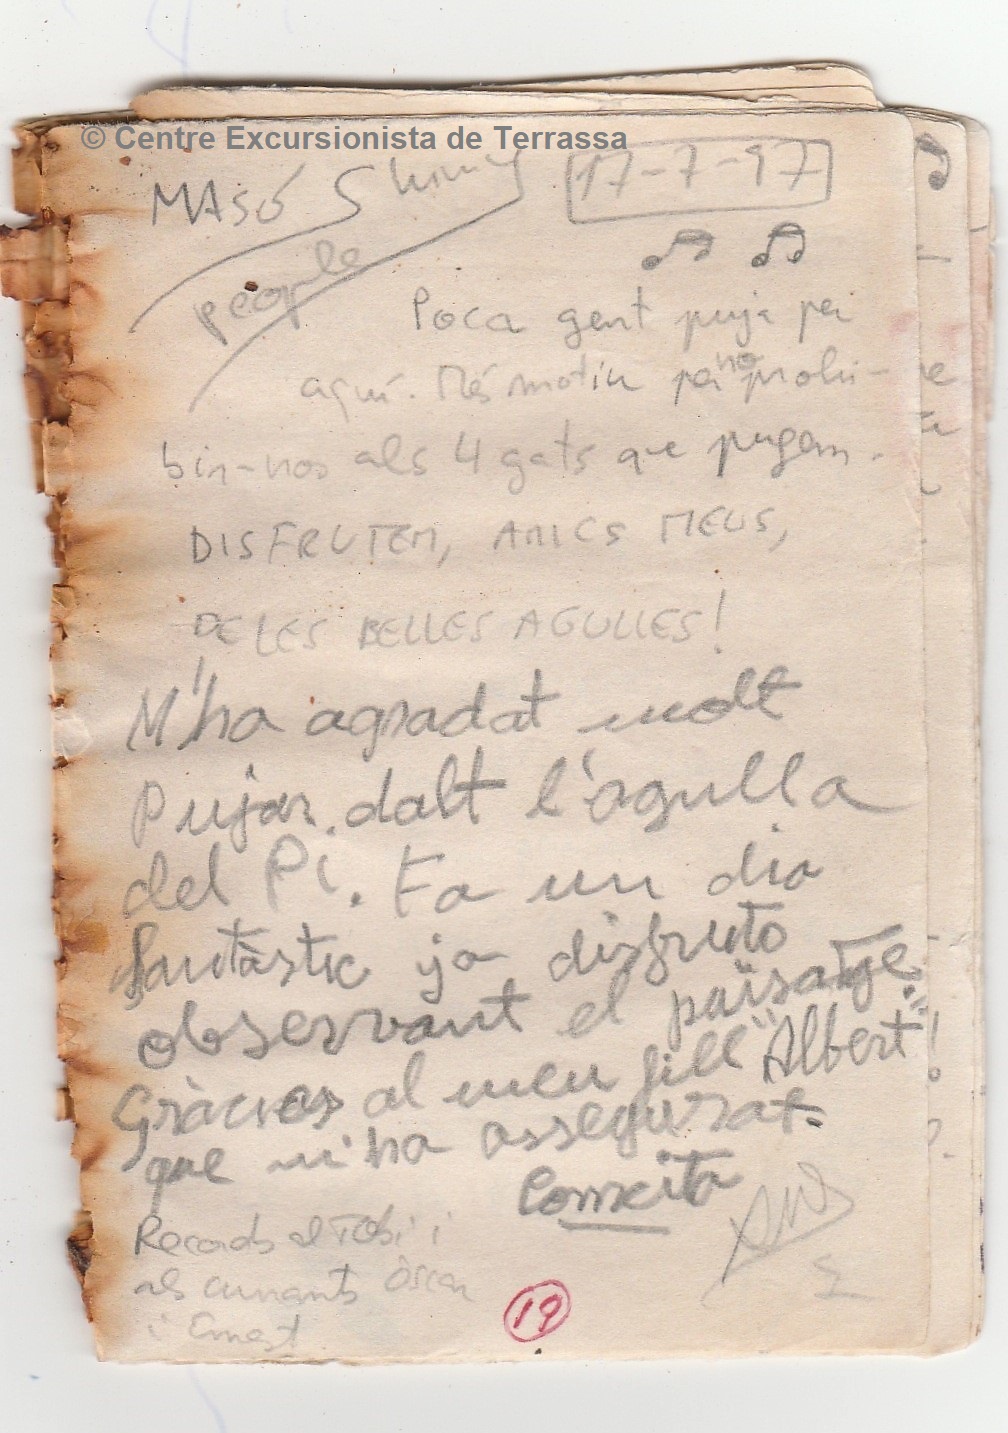 © Centre Excursionista de Terrassa
MASÓ Shiny
people
17-7-97
Poca gent puja per
aquí. Més motiu per no prohi-
bir-nos als 4 gats que pugem.
DISFRUTEM, AMICS MEUS,
DE LES BELLES AGULLES!
M'ha agradat molt
Pujar dalt l'agulla
del Pi. Fa un dia
fantàstic ja disfruto
observant el païsatge.
Gràcies al meu fill "Albert"
que m'ha assegurat.
Conxita
Records al Tobi i
als cunants Òscar
i Ernest
19